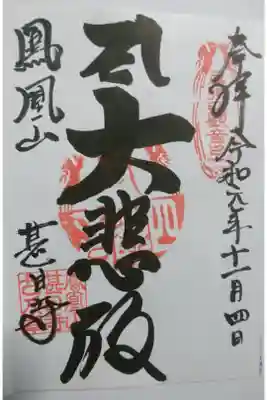 奉拝 令和元年十一月四日
大悲殿
鳳凰山
甚目寺